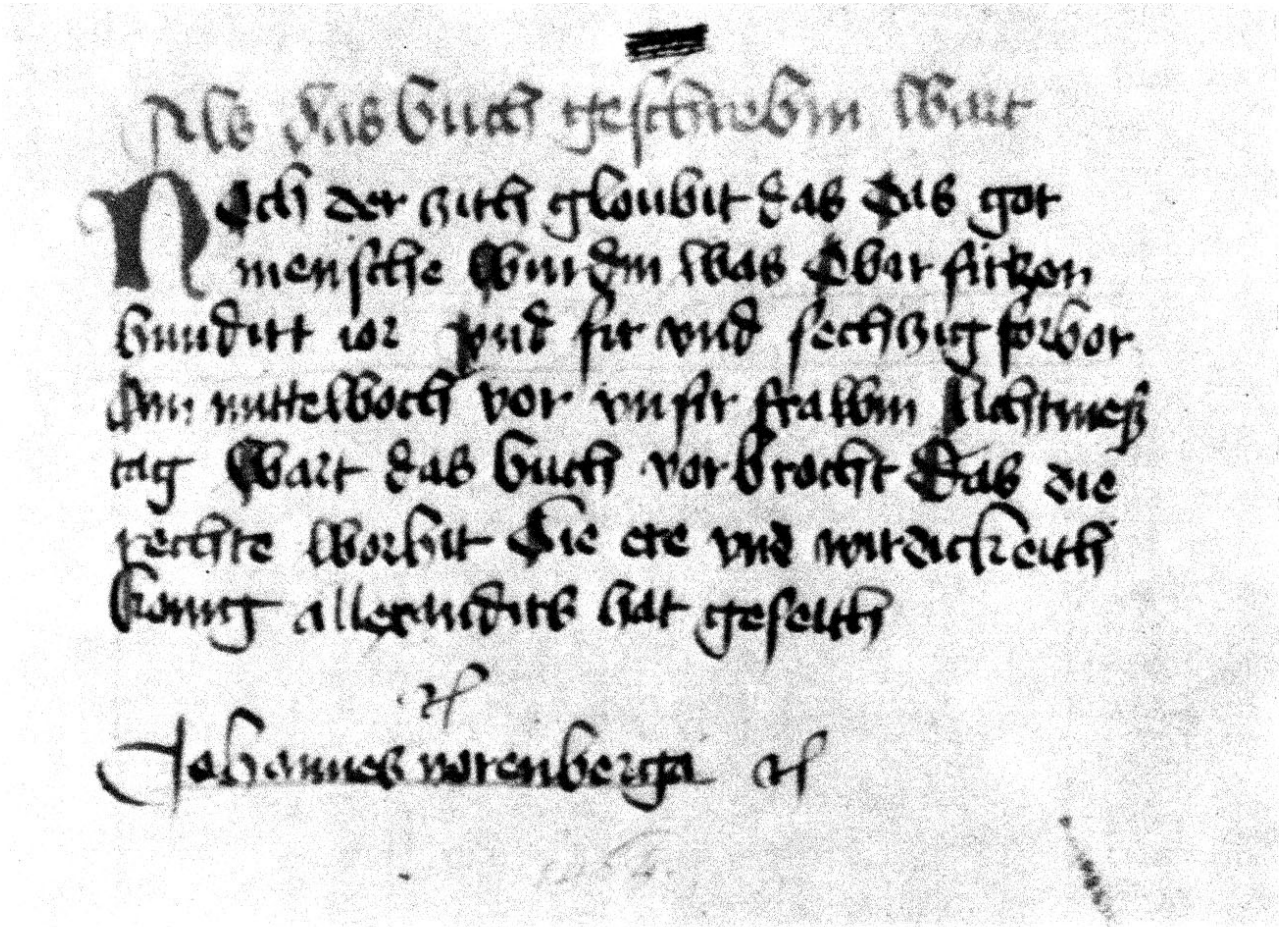 Als das buch geschrebin wart
Noch der zith gloubit das das got
mensche wurdin was Obar firtzen
hundirt ior vnd fir vnd sechzig forbor
Am mittelwoch vor vnsir frawin lichtmeß
tag wart das buch vorbrocht Das die
rechte worhit Die ere vnd wirdickeith
konig allexandirs hat geseith
Johannes norenberga